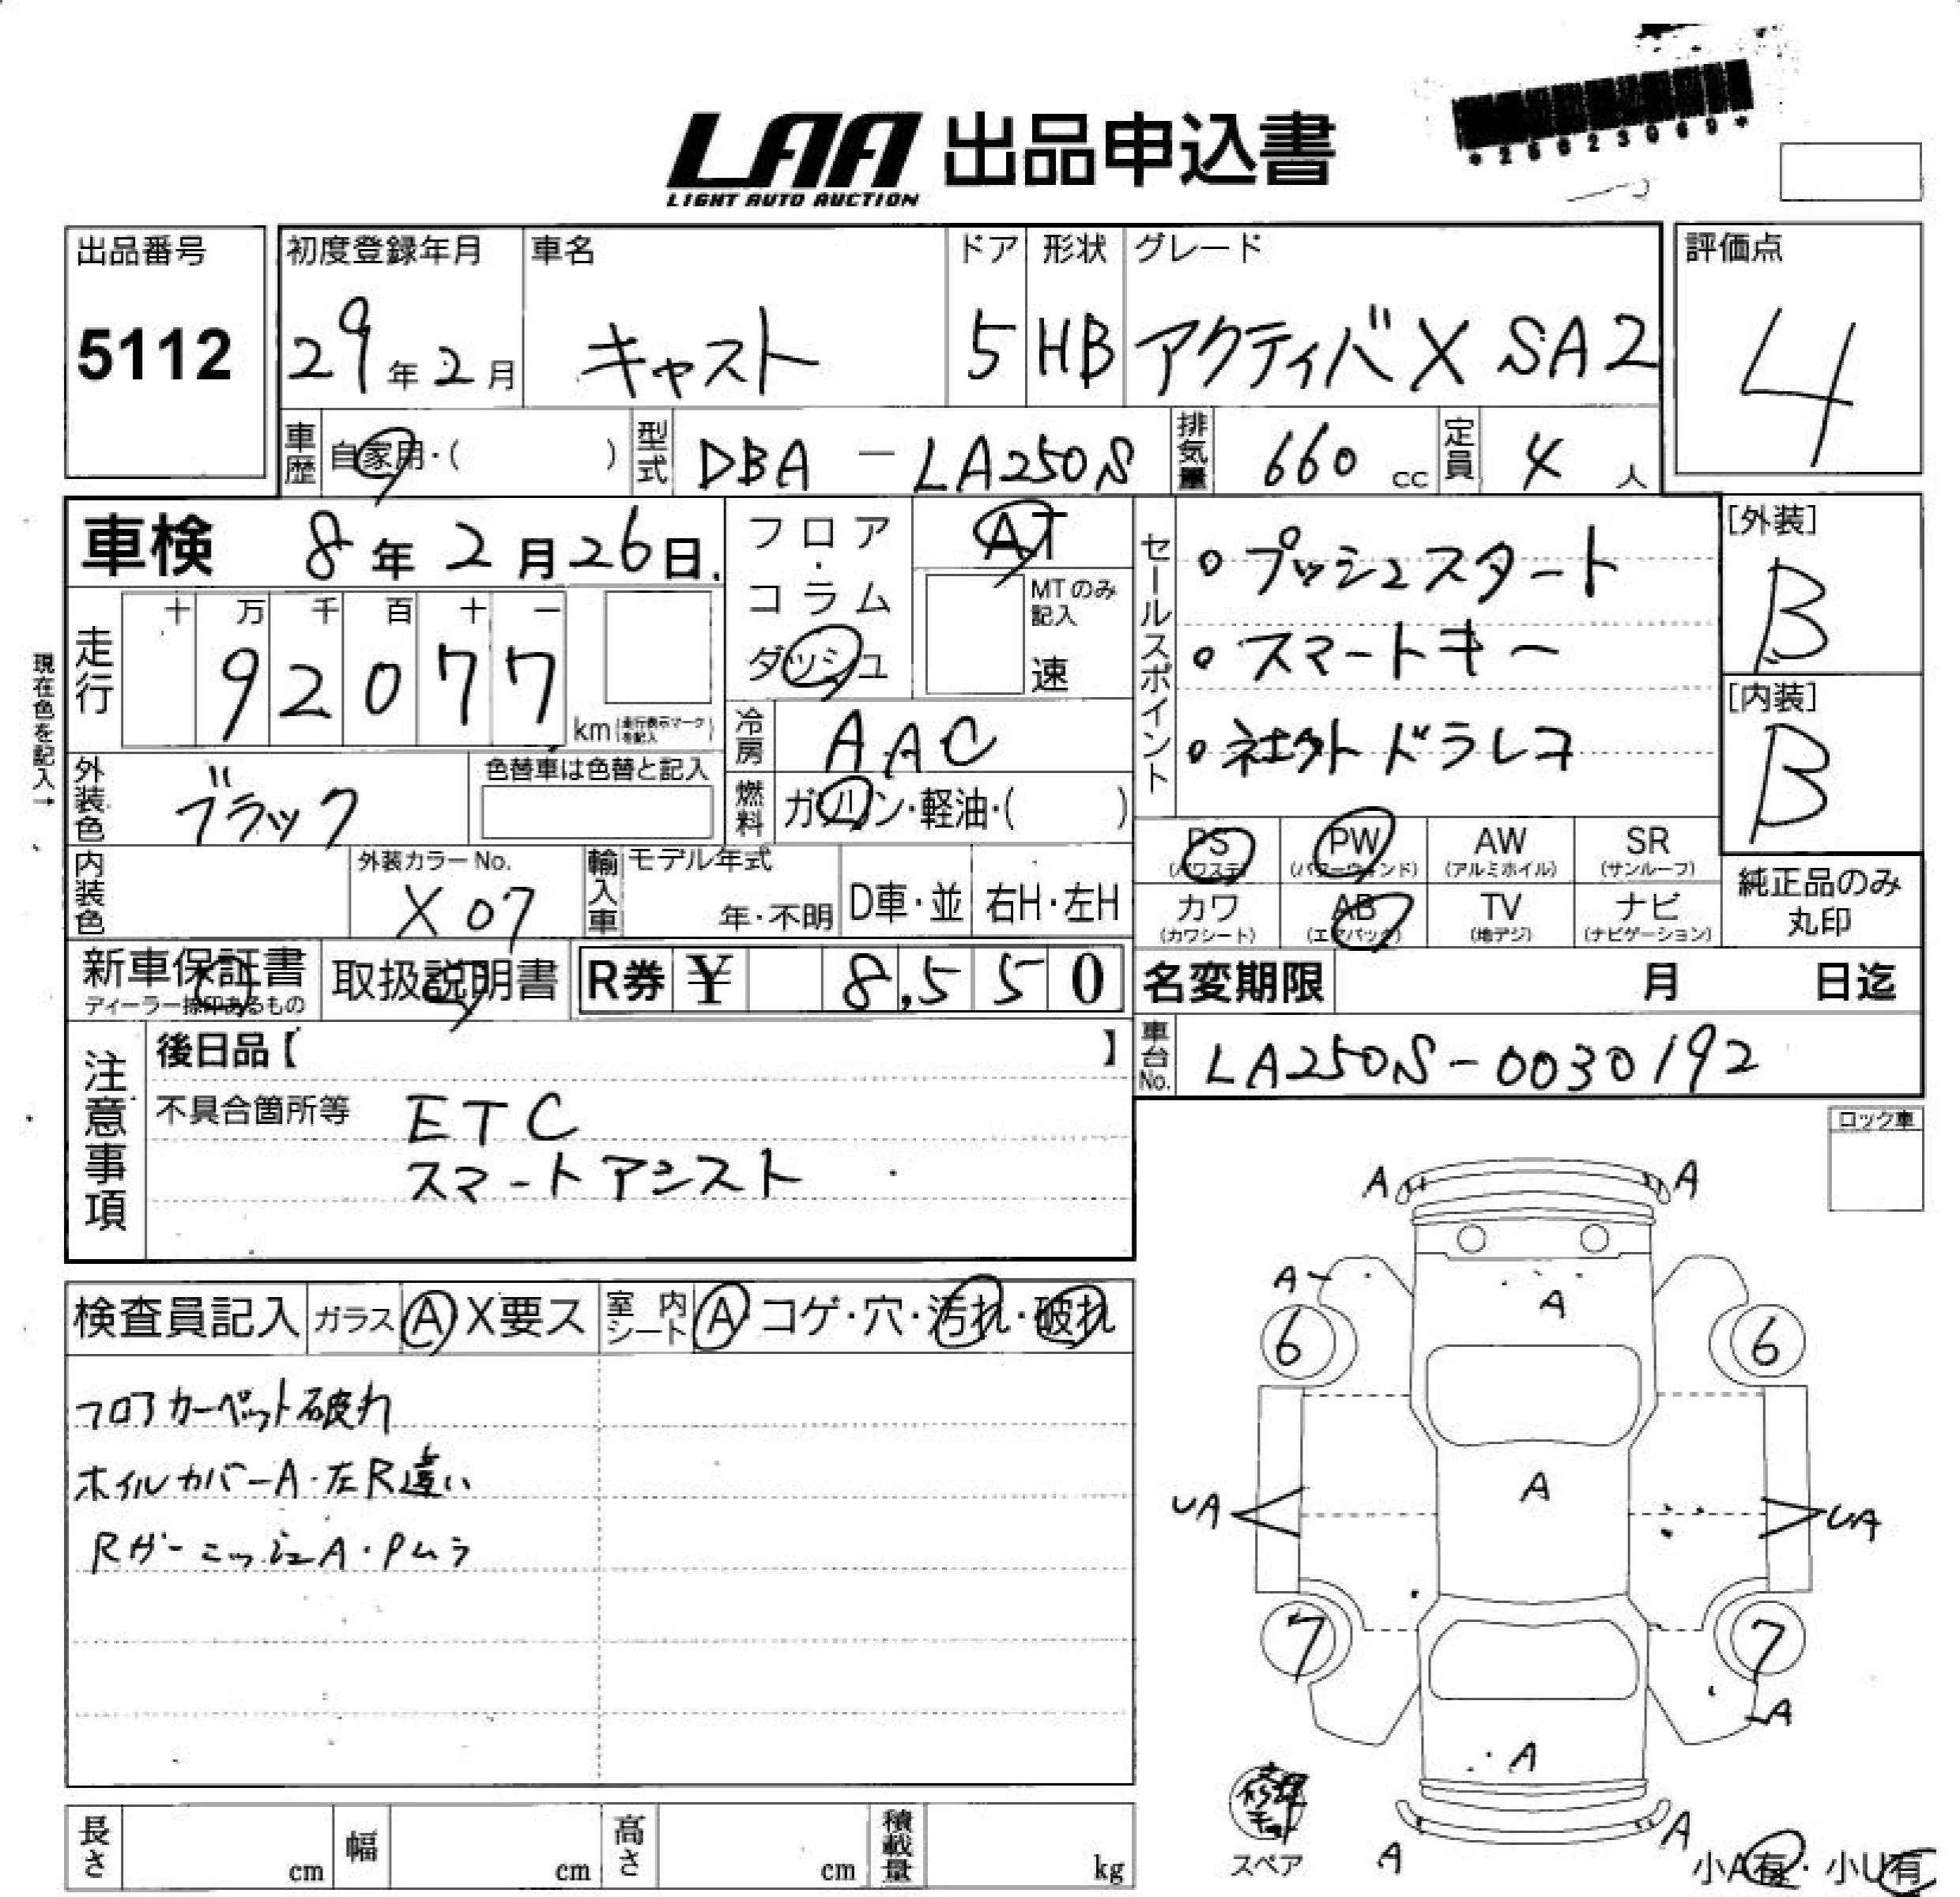 LAA 出品申込書
LIGHT AUTO AUCTION
*25023069*
出品番号
5112
初度登録年月
29年2月
車名
キャスト
ドア
5
形状
HB
グレード
アクティバX SA2
評価点
4
車歴
自家用・( )
型式
DBA - LA250S
排気量
660 cc
定員
4 人
車検 8年2月26日
走行
十 万 千 百 十 一
92077
km(走行表示マークを記入)
現在色を記入→
フロア・コラム
ダッシュ
AT
MTのみ記入
速
冷房
AAC
燃料
ガソリン・軽油・( )
セールスポイント
○プッシュスタート
○スマートキー
ドラレコ
[外装]
B
[内装]
B
外装色
ブラック
色替車は色替と記入
内装色
外装カラーNo.
X07
輸入車
モデル年式
年・不明
D車・並
右H・左H
PS
(パワステ)
PW
(パワーウィンド)
AW
(アルミホイル)
SR
(サンルーフ)
カワ
(カワシート)
AB
(エアバック)
TV
(地デジ)
ナビ
(ナビゲーション)
純正品のみ
丸印
新車保証書
ディーラー捺印あるもの
取扱説明書
R券 ¥ 8,550
名変期限 月 日迄
車台No.
LA250S-0030192
注意事項
後日品【 】
不具合箇所等
ETC
スマートアシスト
ロック車
検査員記入
ガラス A X要ス
室内シート A・コゲ・穴・汚れ・破れ
フロアカーペット破れ
ホイルカバーA・左R違い
RガーニッシュA・Pムラ
A A
A
A
6 6
A
UA UA
7 7
A
A
A A
修理キット
スペア
小A有・小U有
長さ cm
幅 cm
高さ cm
積載量 kg